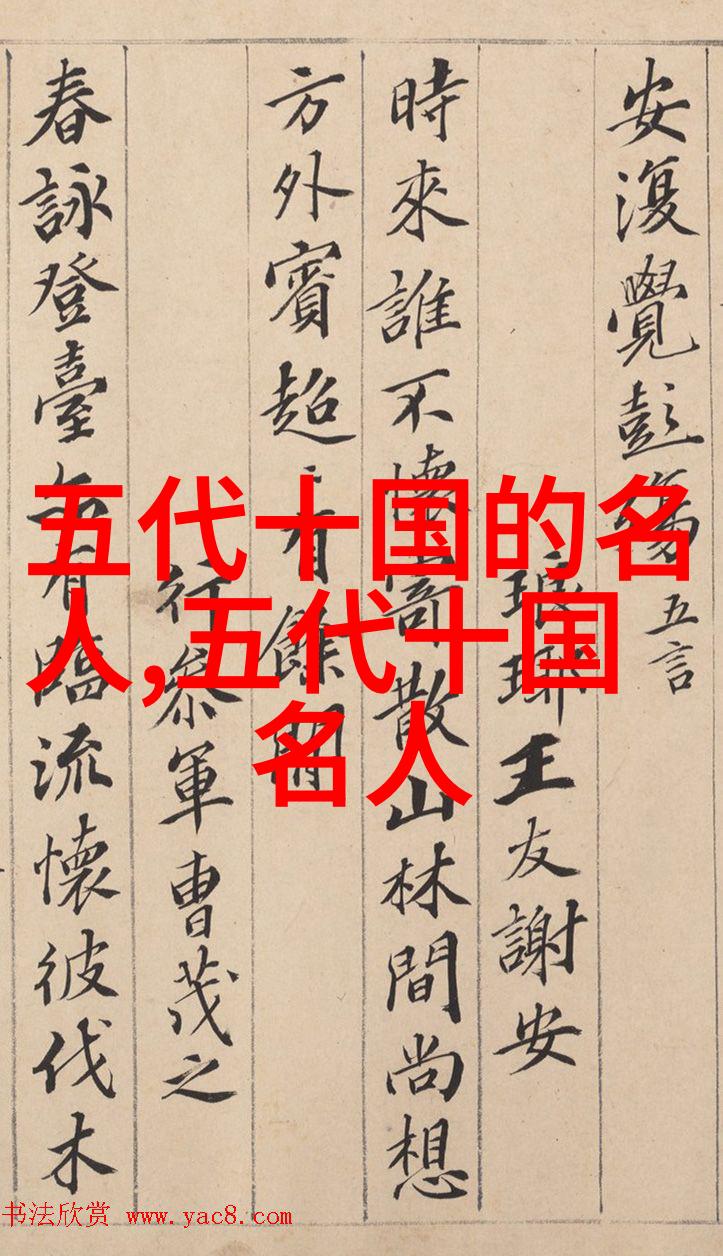 安復覺彭殤五言
琅琊王友謝安
時來誰不懷寄散山林間尚想
方外賓超〻有餘閒
行參軍曹茂之
春詠登臺亦有臨流懷彼伐木
五代十国的名
人,五代十国
名人
书法欣赏 www.yac8.com